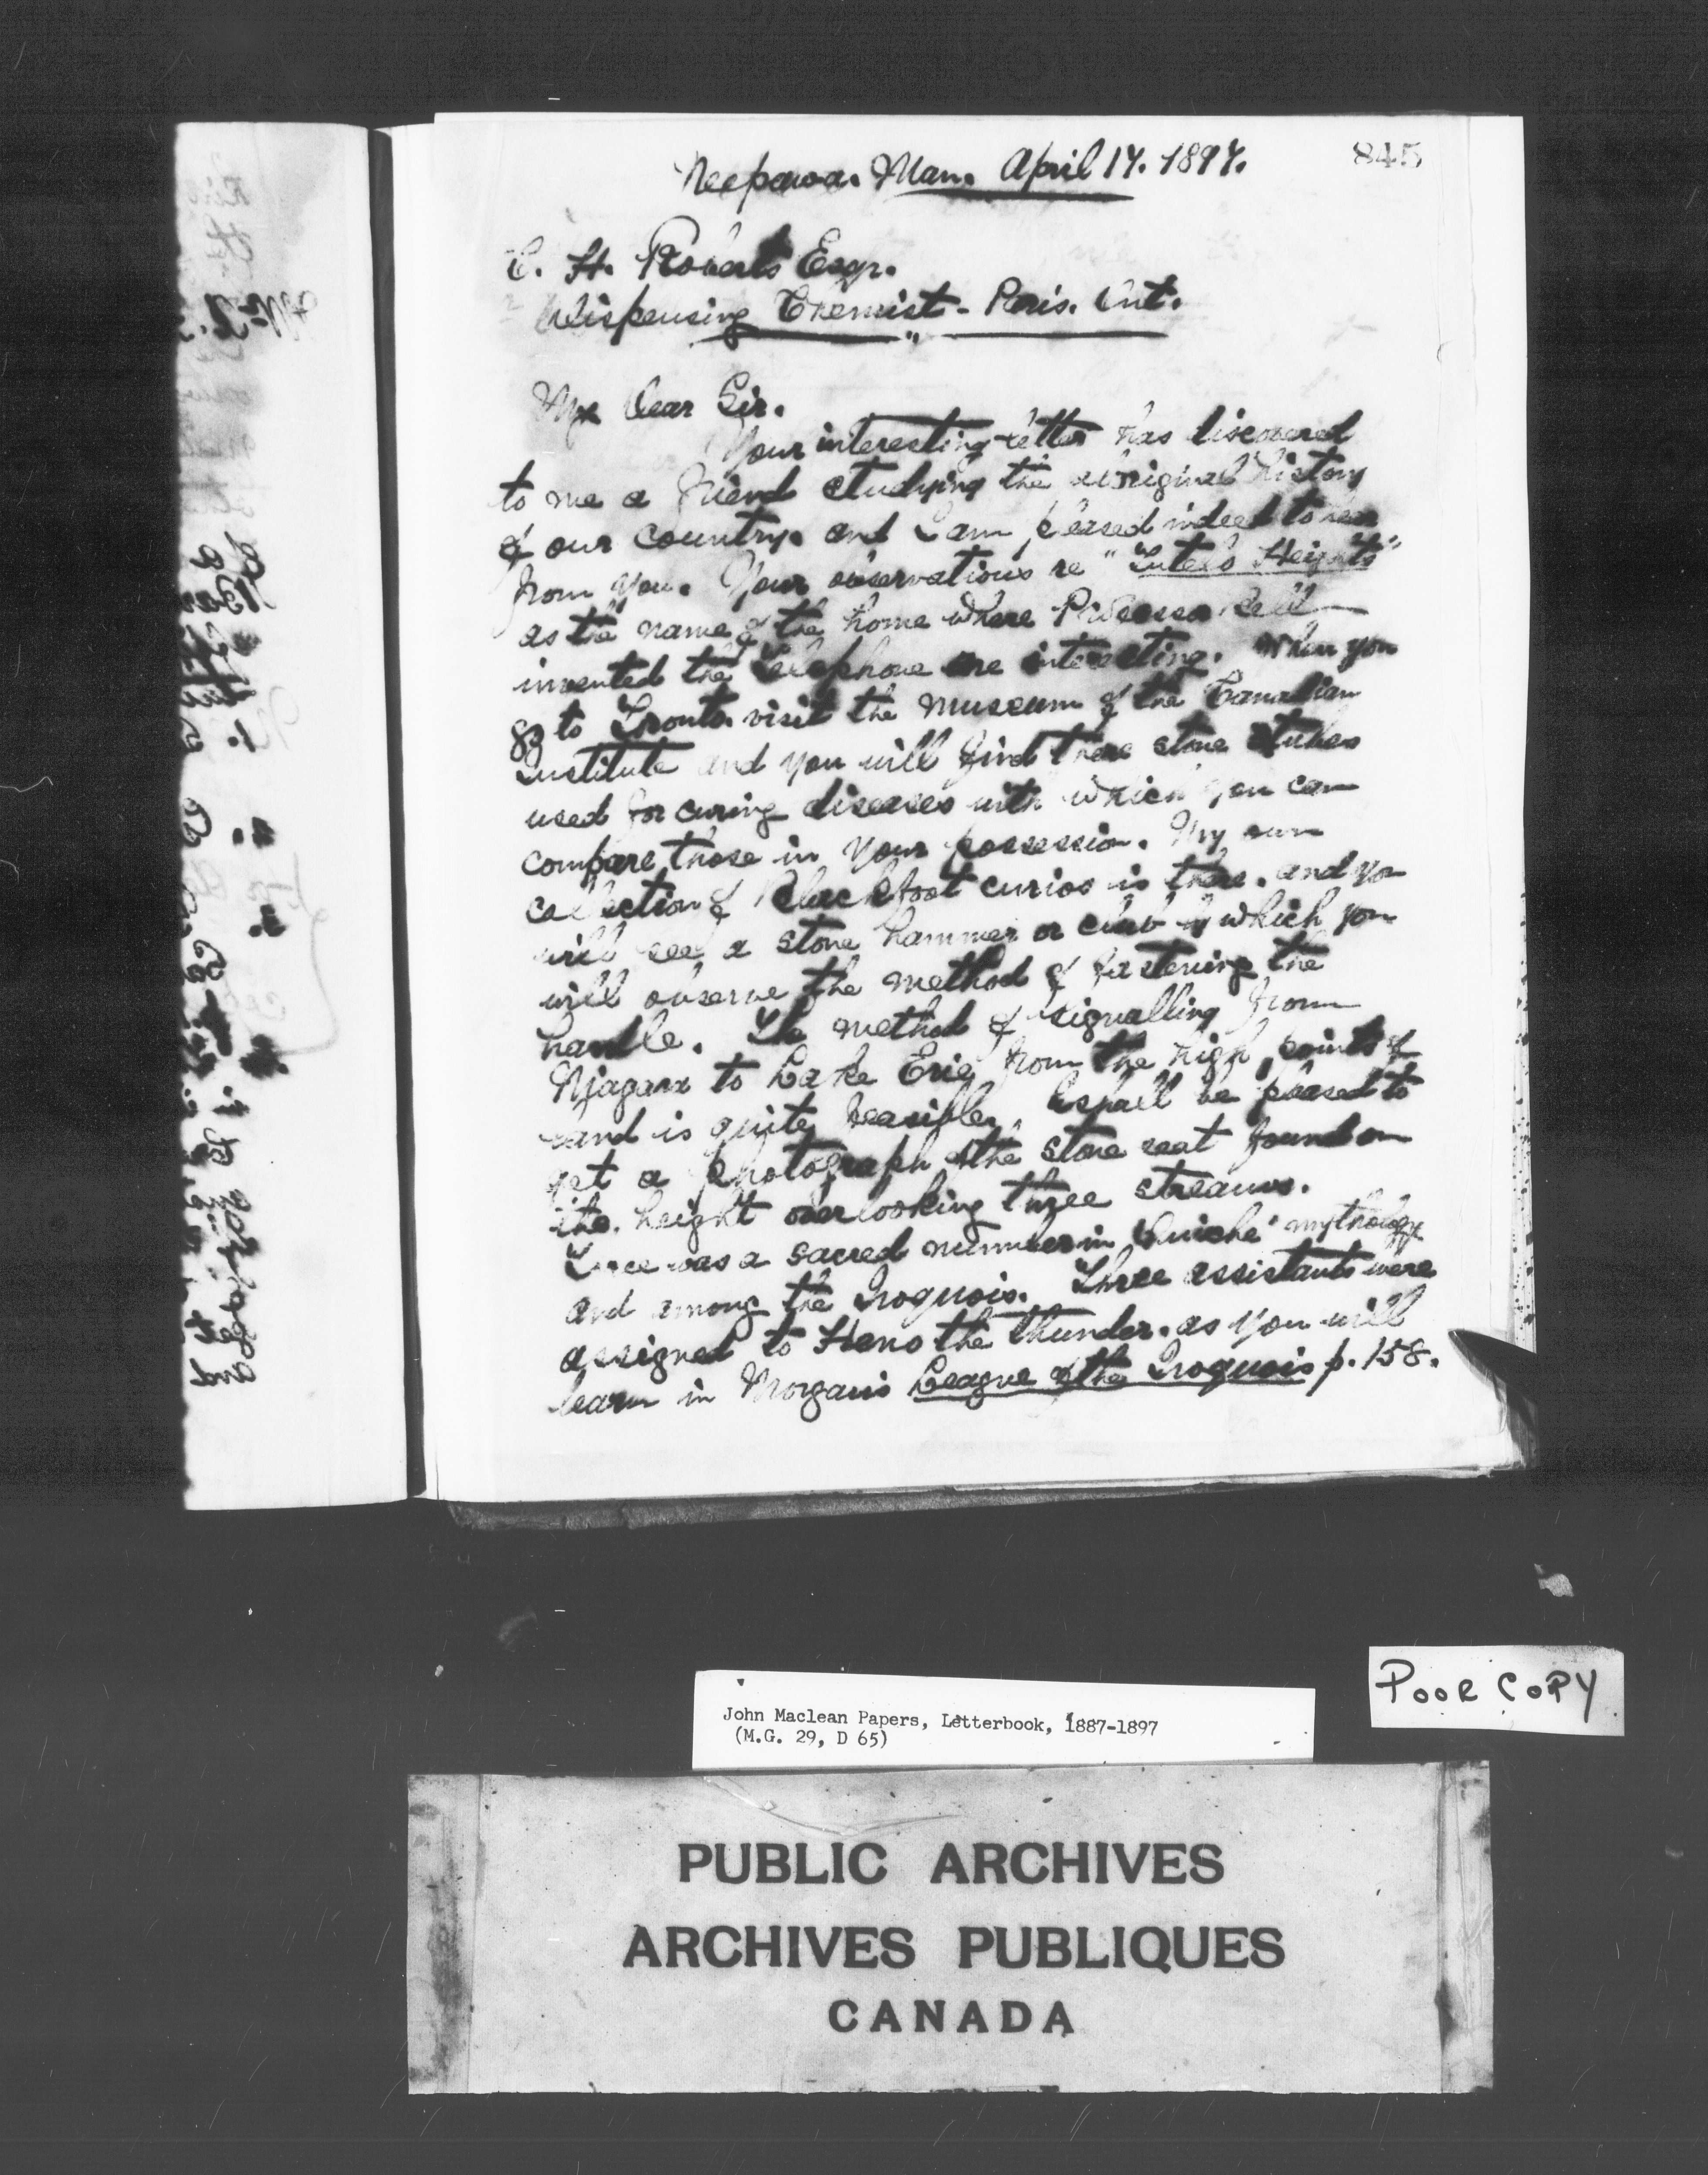 845
Neepawa. Man. April 17. 1897.
C. H. Roberts Esqr.
Dispensing Chemist - Paris. Ont.
My Dear Sir.
Your interesting letter has discovered
to me a friend studying the aboriginal history
of our country. and I am pleased indeed to hear
from you. Your observations re " Heights"
as the name of the home where Professor Bell
invented the Telephone are interesting. When you
go to Toronto. visit the museum of the Canadian
Institute and you will find there stone tubes
used for curing diseases with which you can
compare those in your possession. My own
collection of Blackfoot curios is there. and you
will see a stone hammer or club by which you
will observe the method of fastening the
handle. The method of signalling from
Niagara to Lake Erie from the high points of
land is quite feasible. I shall be pleased to
get a photograph of the stone seat found on
the height overlooking three streams.
Three was a sacred number in Quiché mythology
and among the Iroquois. Three assistants were
assigned to Heno the thunder. as you will
learn in Morgan's League of the Iroquois p. 158.
POOR COPY
John Maclean Papers, Letterbook, 1887-1897
(M.G. 29, D 65)
PUBLIC ARCHIVES
ARCHIVES PUBLIQUES
CANADA